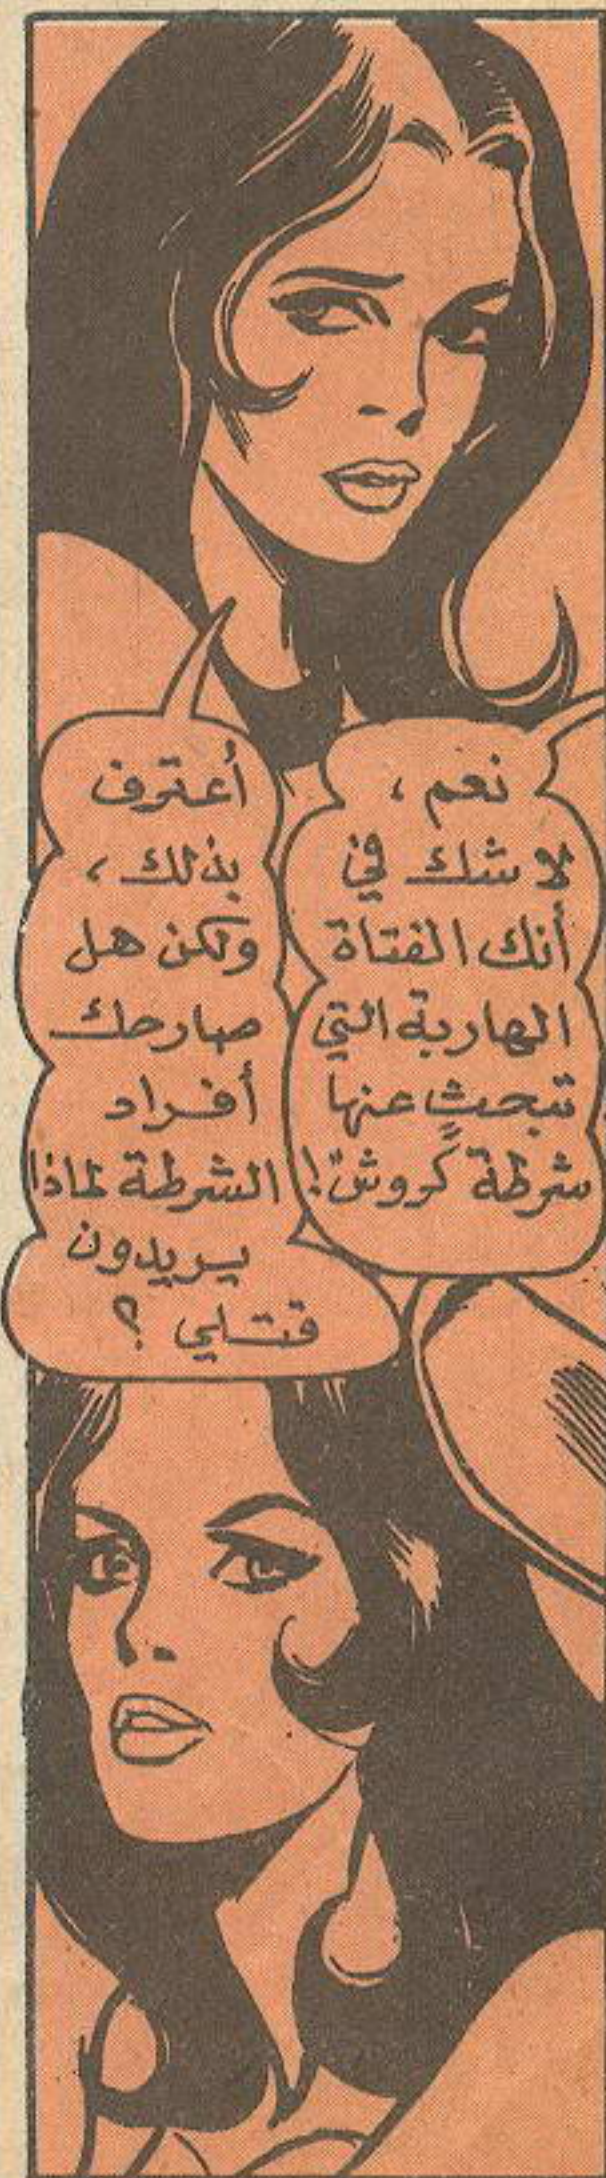 نعم ،
لا شك في
أنك الفتاة
الهاربة التي
تبحث عنها
شرطة كروش!
أعترف
بذلك ،
ولكن هل
صارحك
أفراد
الشرطة لماذا
يريدون
قتلي ؟